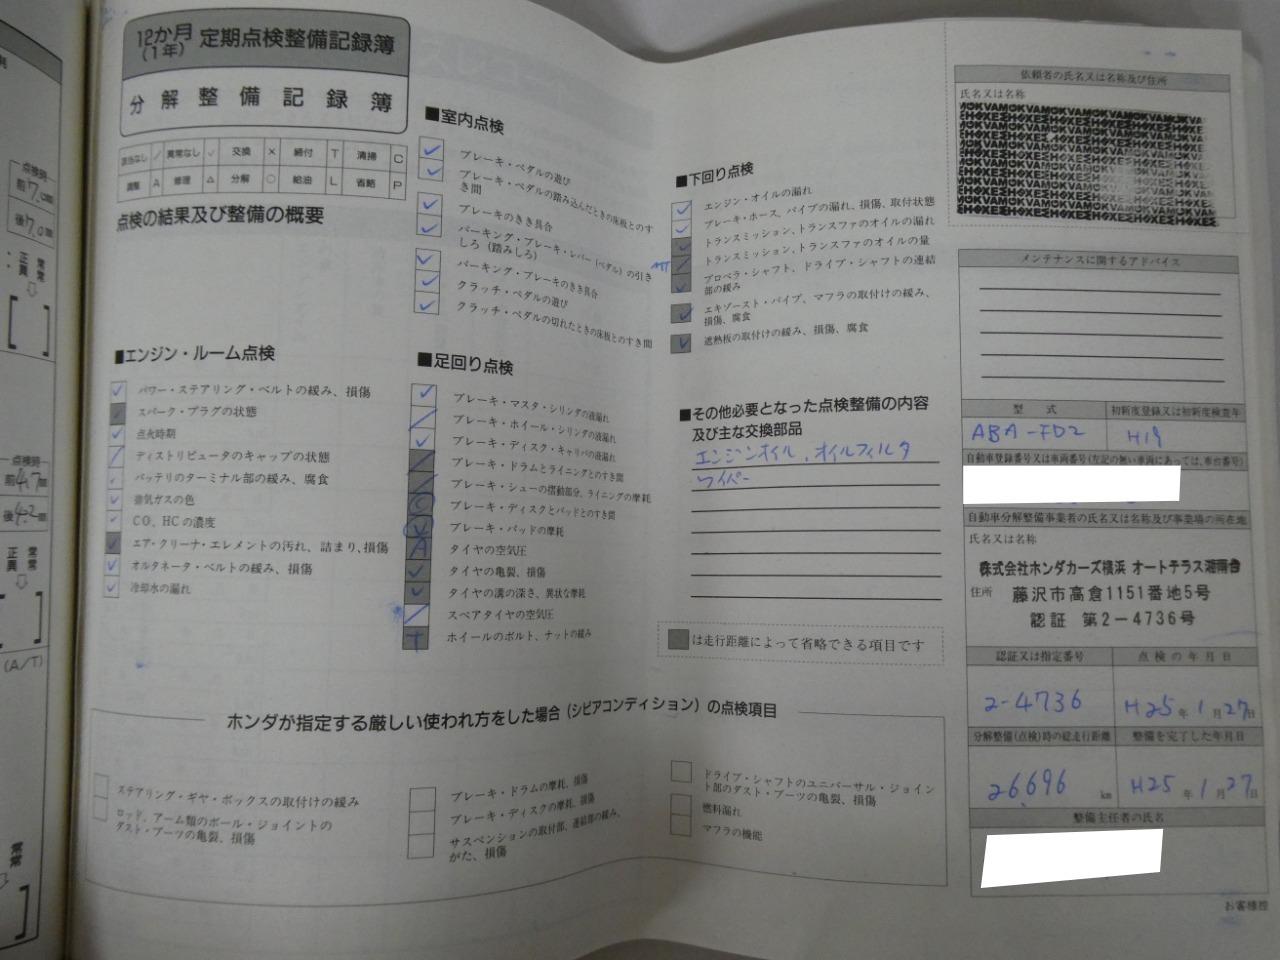 12か月
(1年)
定期点検整備記録簿
分解整備記録簿
該当なし / 異常なし ✓ 交換 × 締付 T 清掃 C
調整 A 修理 △ 分解 ○ 給油 L 省略 P
点検の結果及び整備の概要
■エンジン・ルーム点検
パワー・ステアリング・ベルトの緩み、損傷
スパーク・プラグの状態
点火時期
ディストリビュータのキャップの状態
バッテリのターミナル部の緩み、腐食
排気ガスの色
CO、HCの濃度
エア・クリーナ・エレメントの汚れ、詰まり、損傷
オルタネータ・ベルトの緩み、損傷
冷却水の漏れ
■室内点検
ブレーキ・ペダルの遊び
ブレーキ・ペダルの踏み込んだときの床板とのす
き間
ブレーキのきき具合
パーキング・ブレーキ・レバー(ペダル)の引き
しろ(踏みしろ)
パーキング・ブレーキのきき具合
クラッチ・ペダルの遊び
クラッチ・ペダルの切れたときの床板とのすき間
■足回り点検
ブレーキ・マスタ・シリンダの液漏れ
ブレーキ・ホイール・シリンダの液漏れ
ブレーキ・ディスク・キャリパの液漏れ
ブレーキ・ドラムとライニングとのすき間
ブレーキ・シューの摺動部分、ライニングの摩耗
ブレーキ・ディスクとパッドとのすき間
ブレーキ・パッドの摩耗
タイヤの空気圧
タイヤの亀裂、損傷
タイヤの溝の深さ、異状な摩耗
スペアタイヤの空気圧
ホイールのボルト、ナットの緩み
■下回り点検
エンジン・オイルの漏れ
ブレーキ・ホース、パイプの漏れ、損傷、取付状態
トランスミッション、トランスファのオイルの漏れ
トランスミッション、トランスファのオイルの量
MT
プロペラ・シャフト、ドライブ・シャフトの連結
部の緩み
エキゾースト・パイプ、マフラの取付けの緩み、
損傷、腐食
遮熱板の取付けの緩み、損傷、腐食
■その他必要となった点検整備の内容
及び主な交換部品
エンジンオイル、オイルフィルタ
ワイパー
は走行距離によって省略できる項目です
ホンダが指定する厳しい使われ方をした場合(シビアコンディション)の点検項目
ステアリング・ギヤ・ボックスの取付けの緩み
ロッド、アーム類のボール・ジョイントの
ダスト・ブーツの亀裂、損傷
ブレーキ・ドラムの摩耗、損傷
ブレーキ・ディスクの摩耗、損傷
サスペンションの取付部、連結部の緩み、
がた、損傷
ドライブ・シャフトのユニバーサル・ジョイン
ト部のダスト・ブーツの亀裂、損傷
燃料漏れ
マフラの機能
依頼者の氏名又は名称及び住所
氏名又は名称
メンテナンスに関するアドバイス
型式 初新度登録又は初新度検査年
ABA-FD2 H19
自動車登録番号又は車両番号(左記の無い車両にあっては、車台番号)
自動車分解整備事業者の氏名又は名称及び事業場の所在地
氏名又は名称
株式会社ホンダカーズ横浜 オートテラス湘南台
住所 藤沢市高倉1151番地5号
認証 第2-4736号
認証又は指定番号 点検の年月日
2-4736 H25年1月27日
分解整備(点検)時の総走行距離 整備を完了した年月日
26,696km H25年1月27日
整備主任者の氏名
お客様控
点検時
前7.0mm
後7.0mm
正常
異常
点検時
前4.7mm
後4.2mm
正常
異常
(A/T)